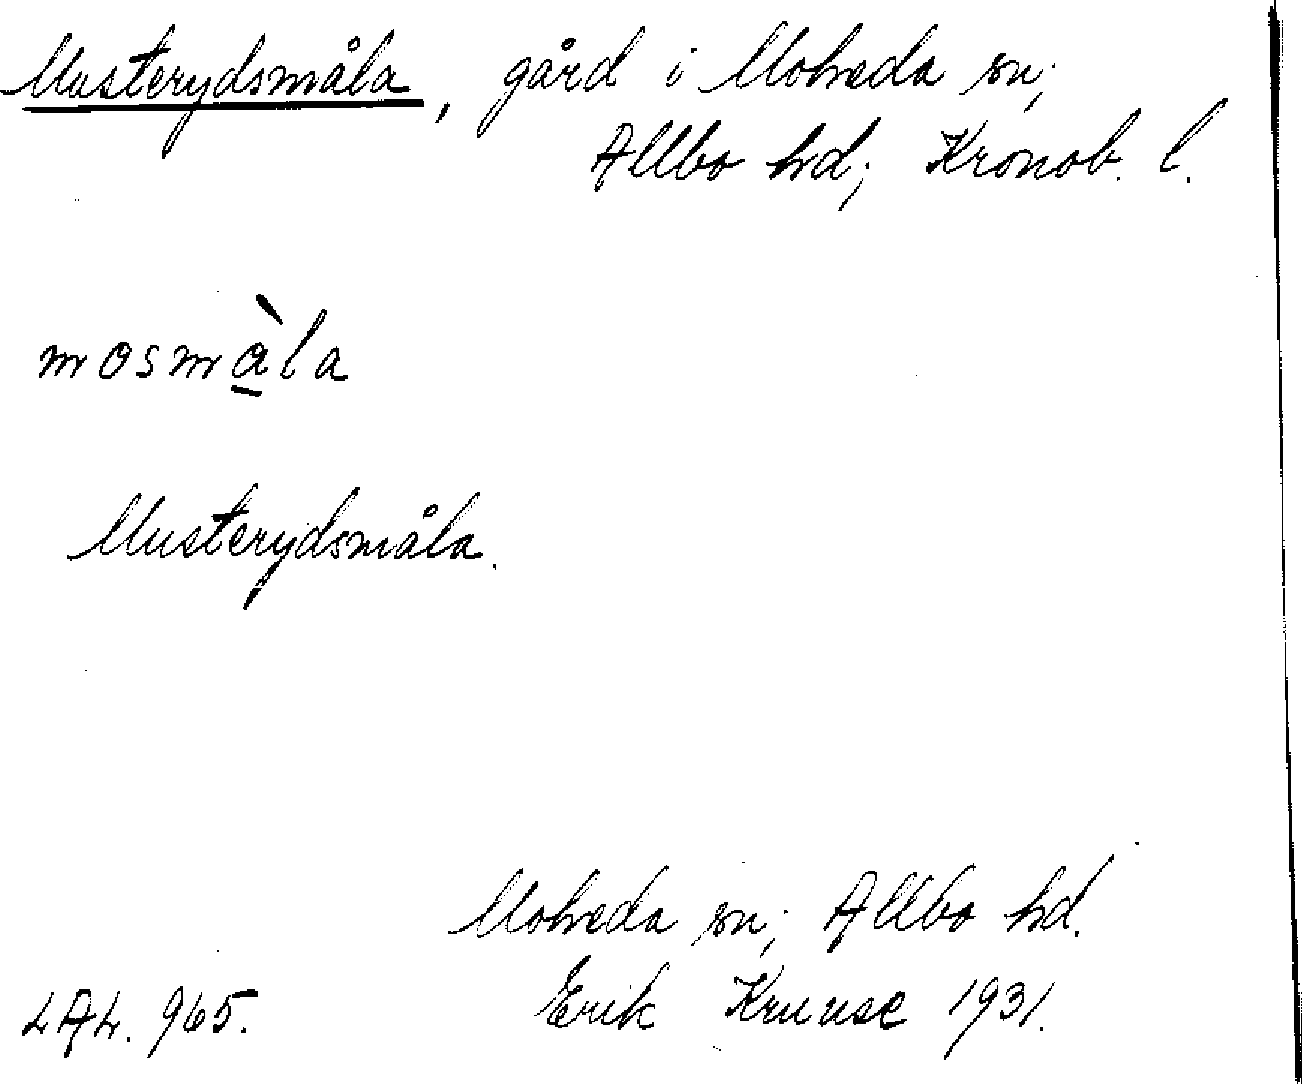 Musterydsmåla, gård i Moheda sn;
Allbo hd; Kronob. l.
mosmàla
Musterydsmåla.
Moheda sn; Allbo hd.
LAL. 965.
Erik Kruuse 1931.